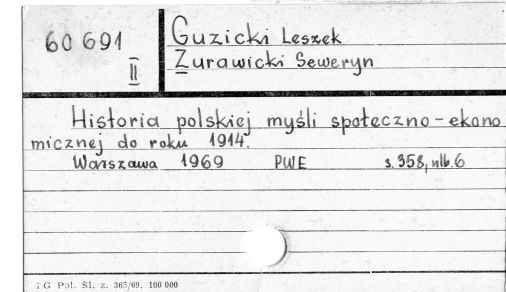 60 691
II
Guzicki Leszek
Żurawicki Seweryn
Historia polskiej myśli społeczno-ekono
micznej do roku 1914.
Warszawa 1969 PWE s. 358, nlb. 6
G Pol. Śl. z. 365/69. 100 000